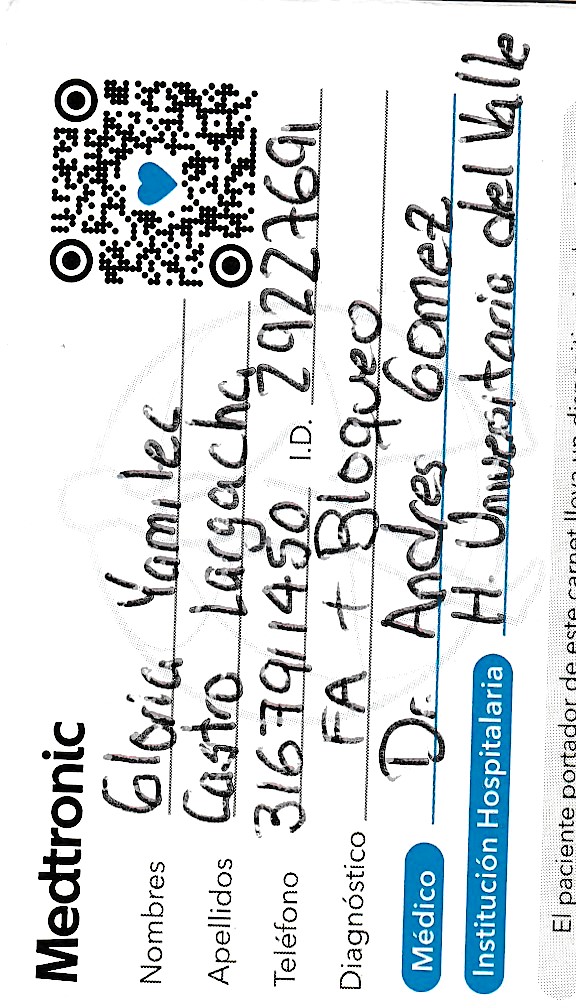 Medtronic
Nombres Gloria Yamilec
Apellidos Castro Largacha
Teléfono 3167911450 I.D. 29227691
Diagnóstico FA + Bloqueo
Médico Dr. Andres Gomez
Institución Hospitalaria H. Universitario del Valle
El paciente portador de este carnet lleva un